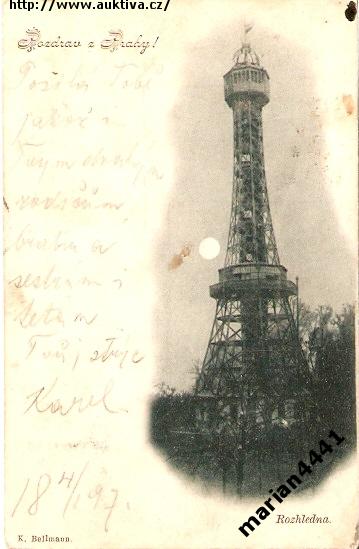 http://www.auktiva.cz/
Pozdrav z Prahy!
Pošílá Tobě
jakož i
Tvým drahým
rodičům
bratru a
sestrám i
tetám
Tvůj strýc
Karel
18 4/1 97.
marian4441
Rozhledna.
K. Bellmann.